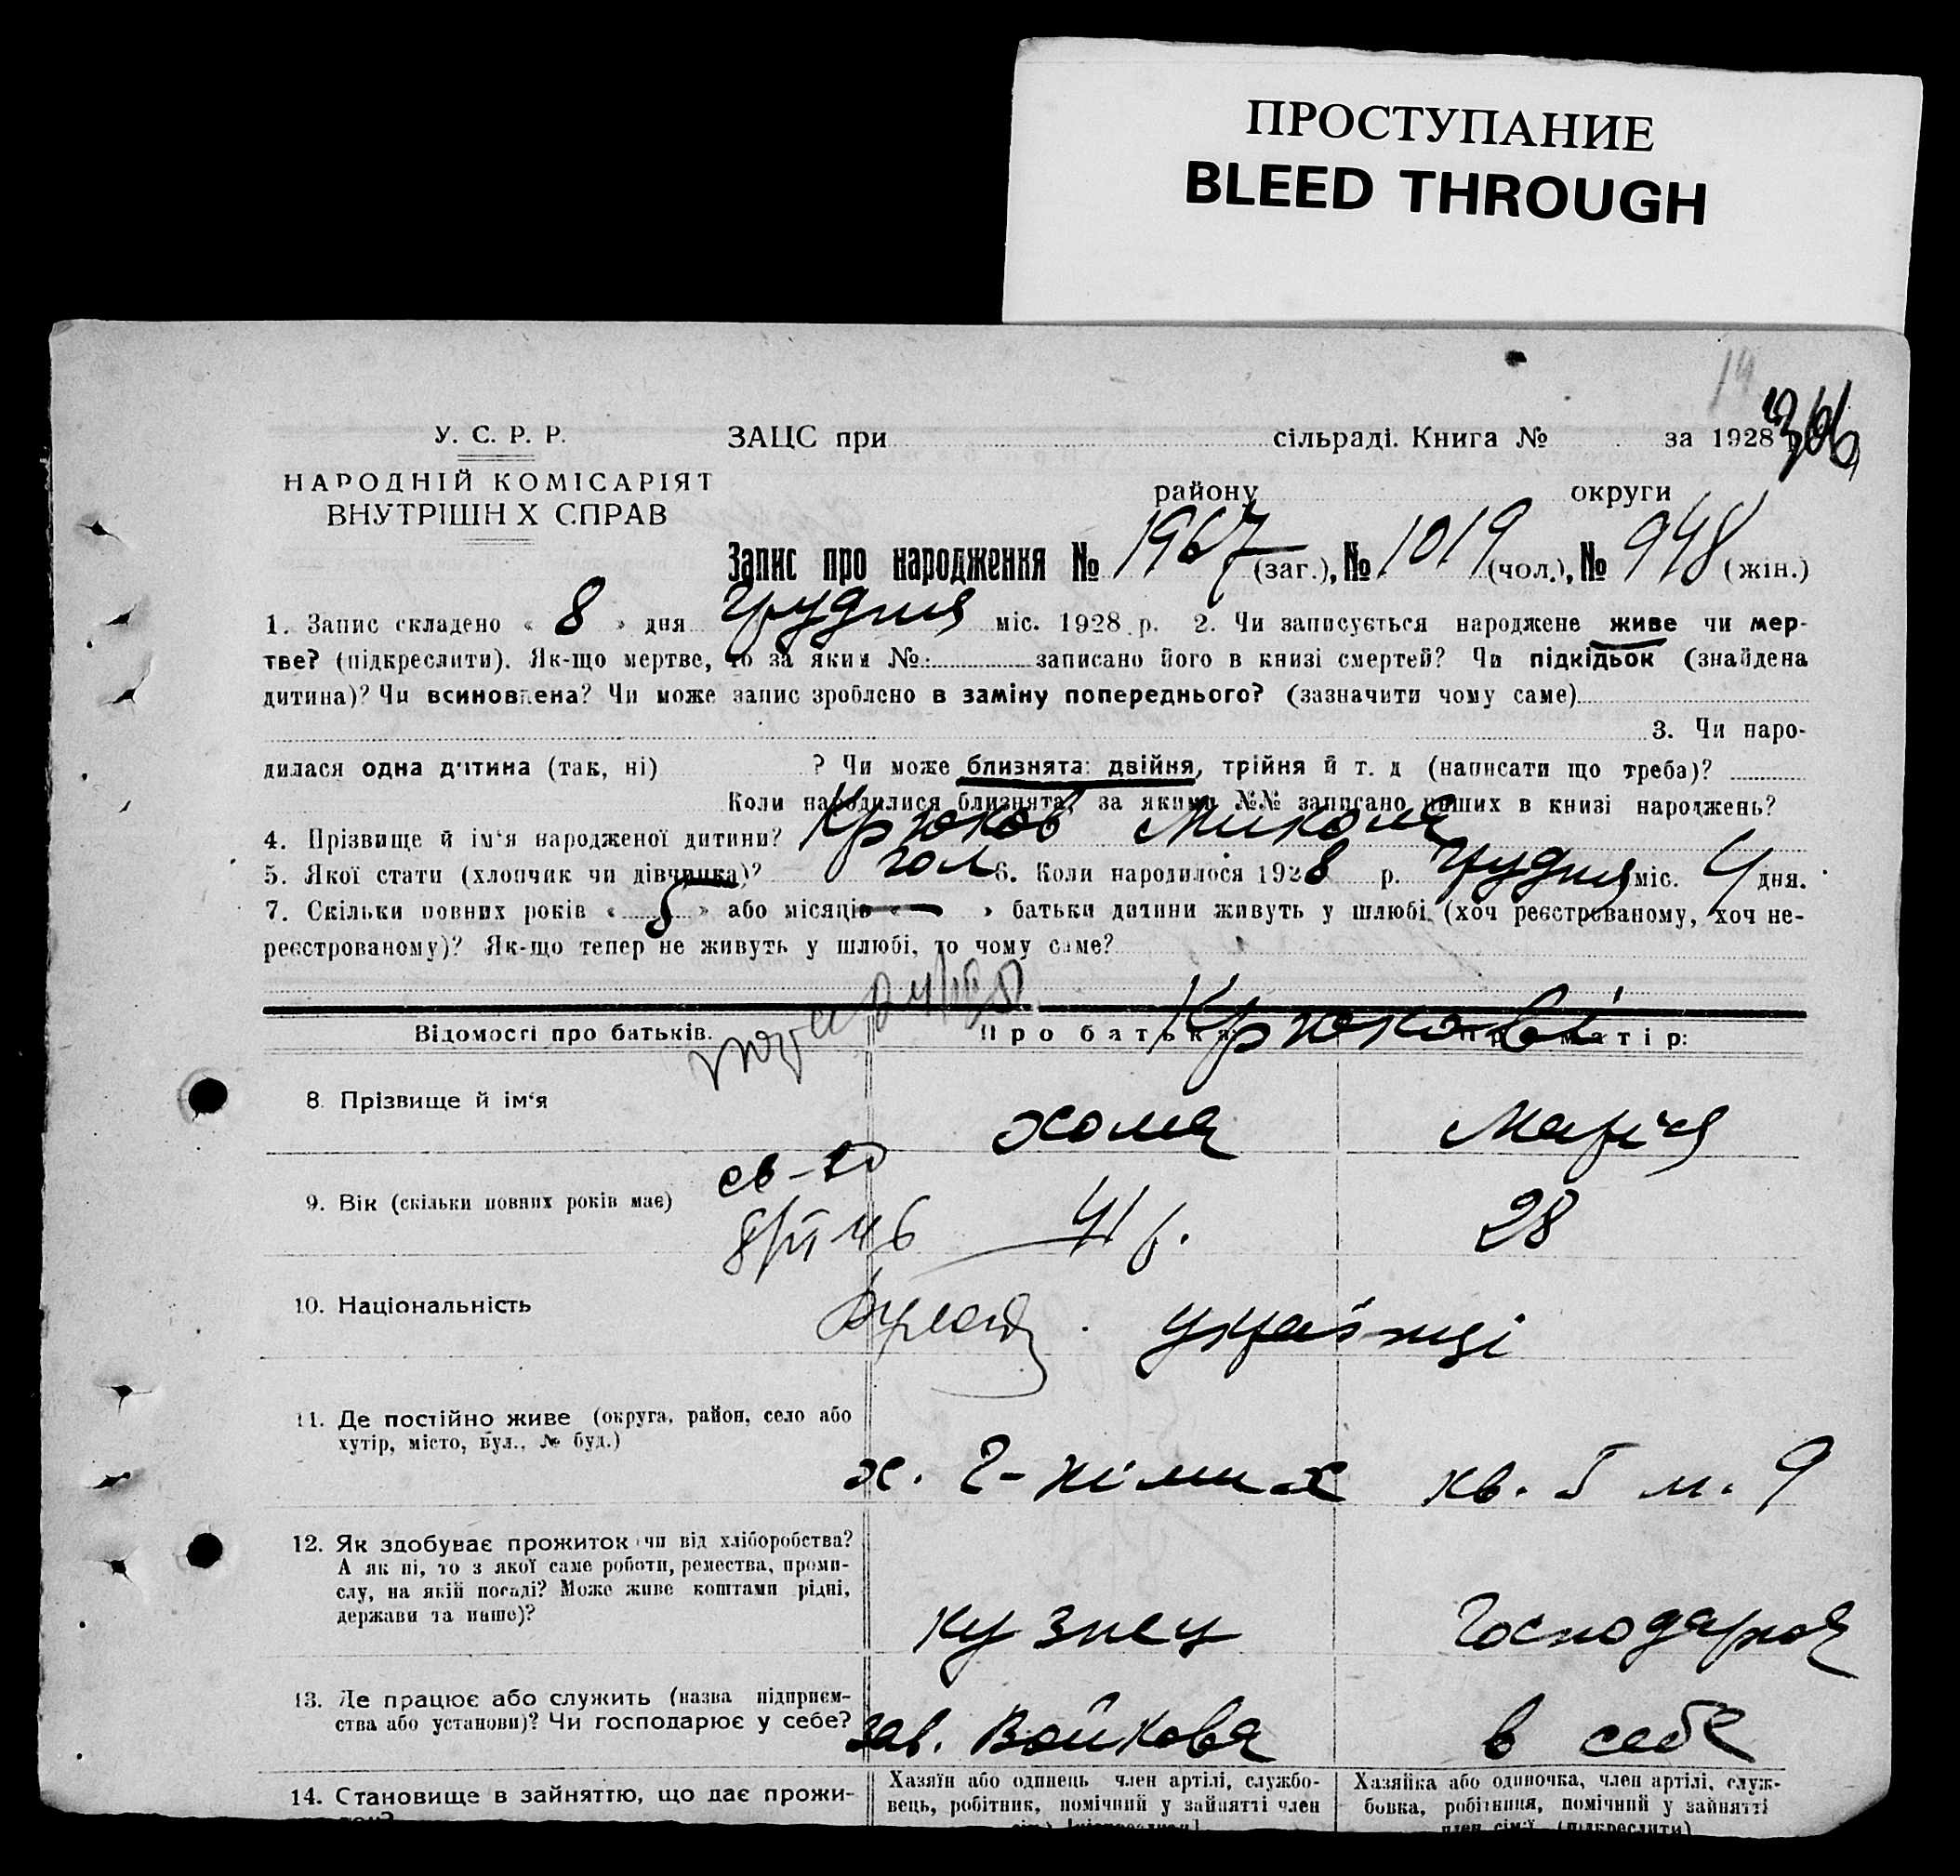 ПРОСТУПАНИЕ
BLEED THROUGH
14
366
У. С. Р. Р.
НАРОДНІЙ КОМІСАРІЯТ
ВНУТРІШН Х СПРАВ
ЗАЦС при сільраді. Книга № за 1928
району округи
Запис про народження № 1967 (заг.), № 1019 (чол.), № 948 (жін.)
1. Запис складено « 8 » дня грудня міс. 1928 р. 2. Чи записується народжене живе чи мер-
тве? (підкреслити). Як-що мертве, то за яким № записано його в книзі смертей? Чи підкідьок (знайдена
дитина)? Чи всиновлена? Чи може запис зроблено в заміну попереднього? (зазначити чому саме)
3. Чи наро-
дилася одна дитина (так, ні) ? Чи може близнята: двійня, трійня й т. д (написати що треба)?
Коли народилися близнята, за якими №№ записано инших в книзі народжень?
4. Прізвище й ім'я народженої дитини? Крюков Микола
5. Якої стати (хлопчик чи дівчинка)? чол 6. Коли народилося 1928 р. грудня міс. 4 дня.
7. Скільки повних років « 5 » або місяців « — » батьки дитини живуть у шлюбі (хоч реєстрованому, хоч не-
реєстрованому)? Як-що тепер не живуть у шлюбі, то чому саме?
Крюкові
Відомості про батьків. Про батька: Про матір:
8. Прізвище й ім'я Хома Марія
9. Вік (скільки повних років має) 41 р. 28
10. Національність українці
11. Де постійно живе (округа, район, село або
хутір, місто, вул., № буд.)
кв. 5 м. 9
12. Як здобуває прожиток чи від хліборобства?
А як ні, то з якої саме роботи, ремества, проми-
слу, на якій посаді? Може живе коштами рідні,
держави та инше)?
кузнец Господарка
13. Де працює або служить (назва підприєм-
ства або установи)? Чи господарює у себе?
зав. Войкова в себе
14. Становище в зайняттю, що дає прожи-
Хазяїн або одинець член артілі, службо-
вець, робітник, помічний у зайнятті член
Хазяйка або одиночка, член артілі, служ-
бовка, робітниця, помічний у зайнятті
член сім'ї (підкреслити)